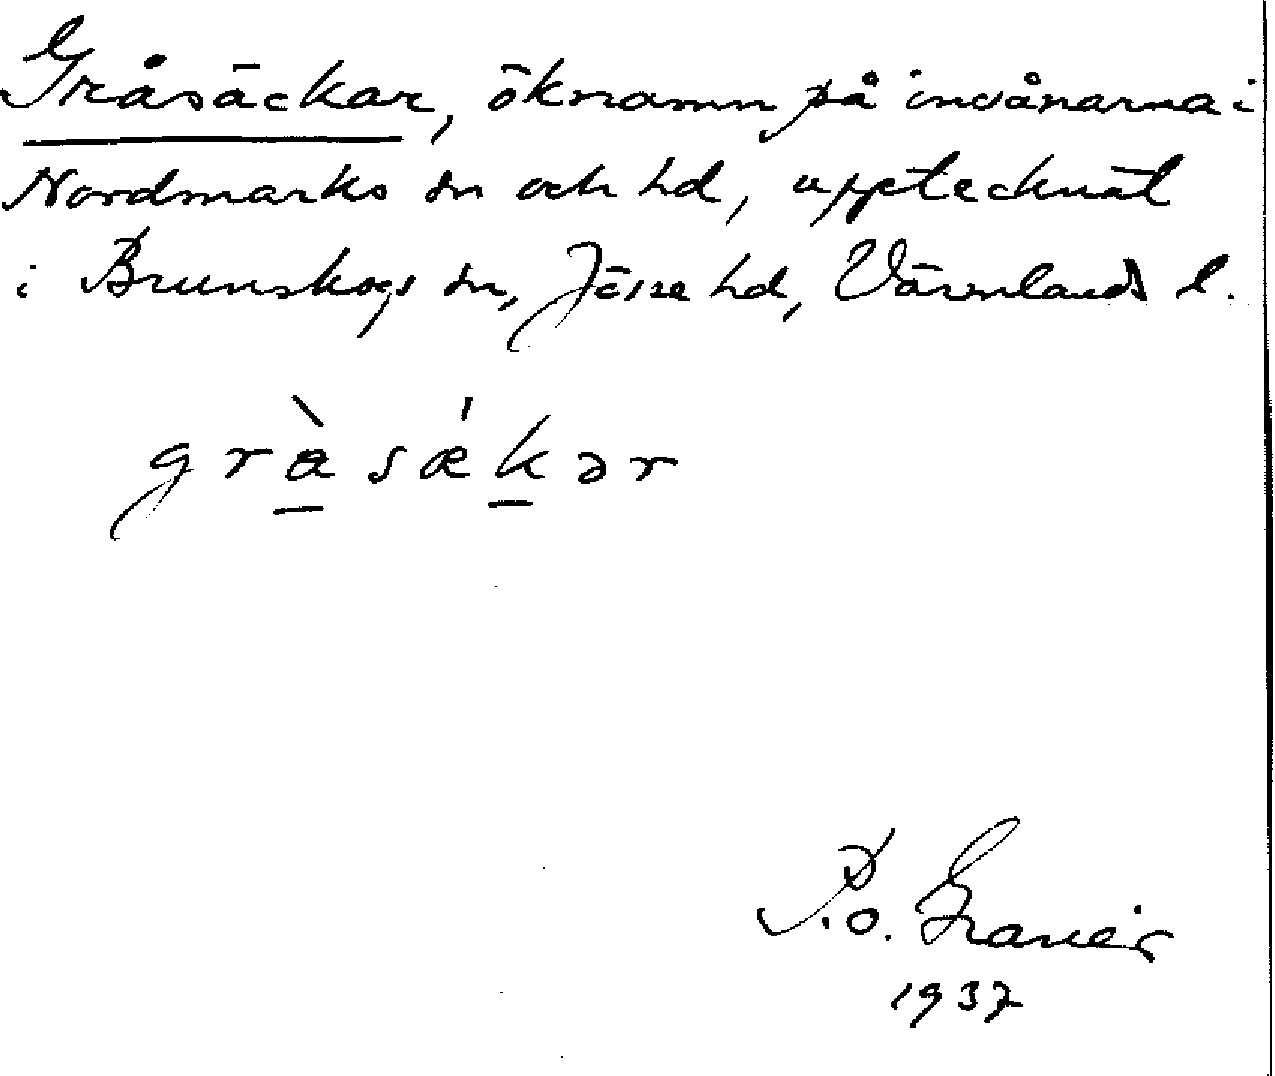 Gråsäckar, öknamn på invånarna i
Nordmarks sn och hd, upptecknat
i Brunskogs sn, Jösse hd, Värmlands l.
gràsǽkər
P.o. Graner
1937